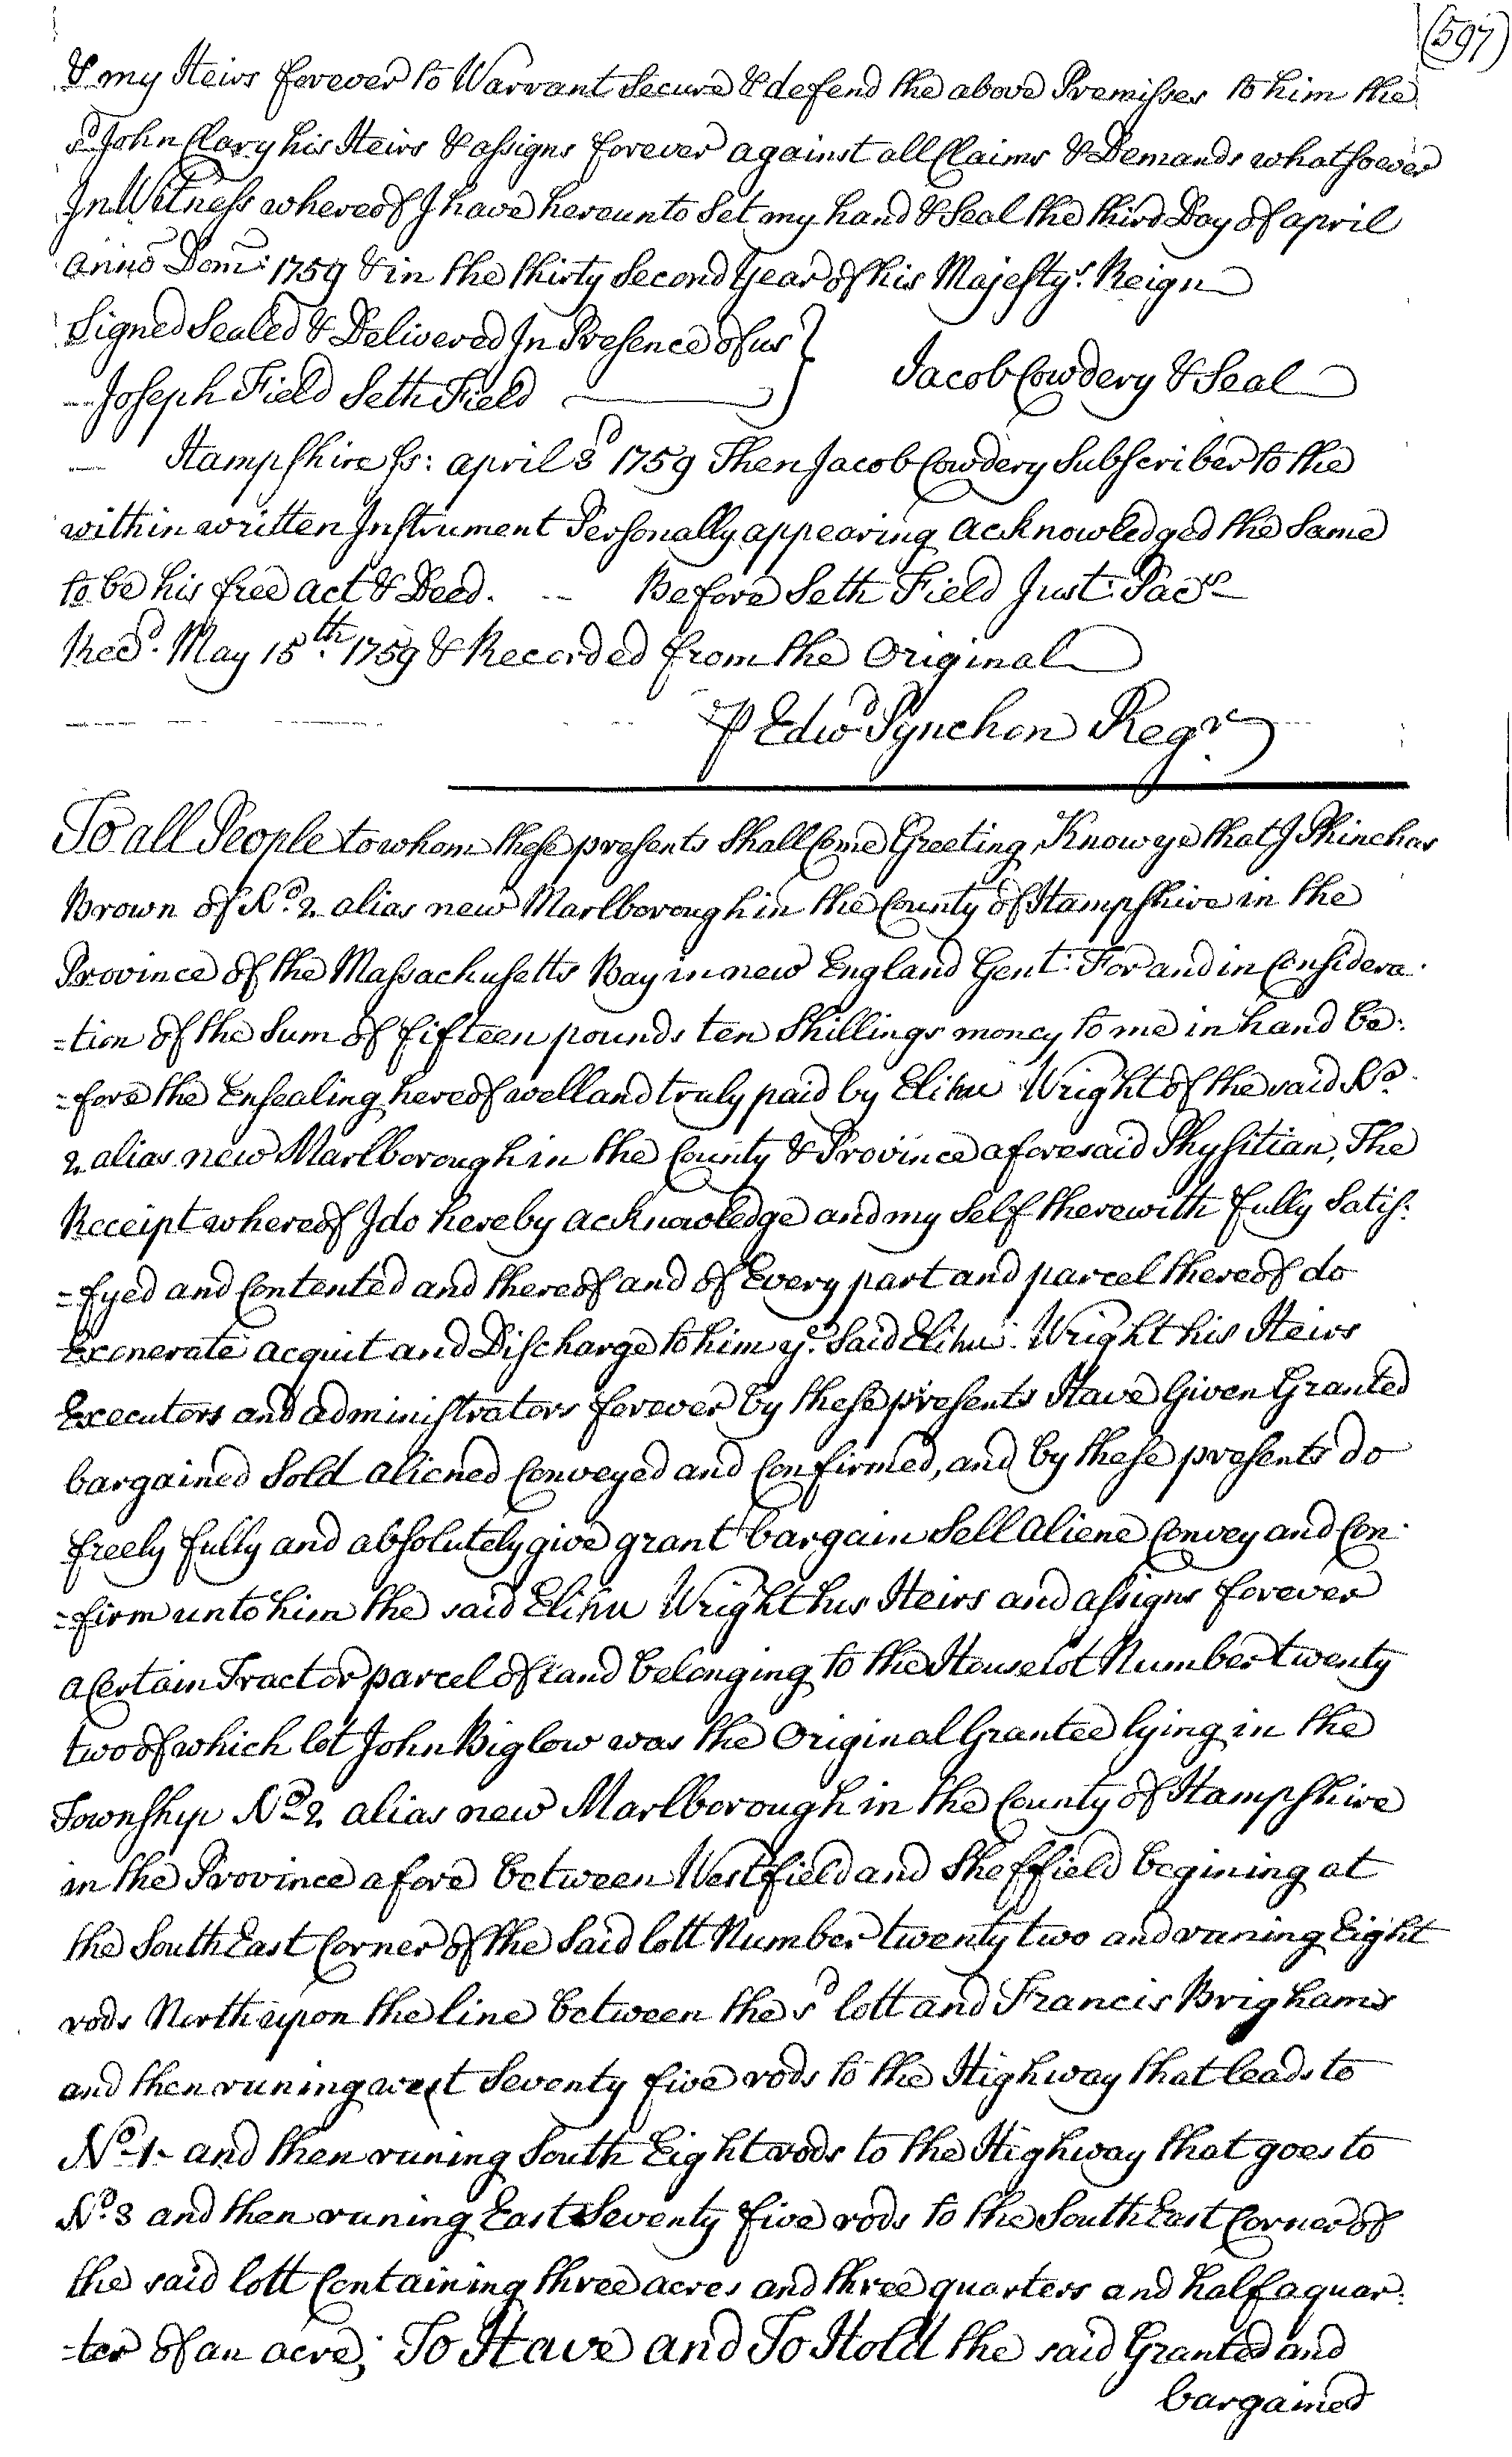 (597)
& my Heirs forever to Warrant Secure & defend the above Premisses to him the
sd John Clary his Heirs & assigns forever against all Claims & Demands whatsoever
In Witness whereof I have hereunto Set my hand & Seal the third Day of april
Anno Dom: 1759 & in the thirty Second Year of his Majestys. Reign
Signed Sealed & Delivered In Presence of us }
Joseph Field Seth Field
Jacob Cowdery & Seal
Hampshire ss: april 3d 1759 Then Jacob Cowdery Subscriber to the
within written Instrument Personally appearing acknowledged the Same
to be his free act & Deed. -- Before Seth Field Just: Pacs
Recd. May 15th. 1759 & Recorded from the Original
P Edwd Pynchon Regr
To all People to whom these presents Shall Come Greeting, Know ye that I Phinehas
Brown of No. 2 alias new Marlborough in the County of Hampshire in the
Province of the Massachusetts Bay in new England Gent: For and in Considera-
=tion of the Sum of fifteen pounds ten Shillings money to me in hand be:
=fore the Ensealing hereof well and truly paid by Elihu Wright of the said No.
2 alias new Marlborough in the County & Province aforesaid Physitian, The
Receipt whereof I do hereby acknowledge and my Self therewith fully Satis:
=fyed and Contented and thereof and of Every part and parcel thereof do
Exonerate acquit and Discharge to him ye. Said Elihu Wright his Heirs
Executors and administrators forever by these presents Have Given Granted
bargained Sold aliened Conveyed and Confirmed, and by these presents do
freely fully and absolutely give grant bargain Sell aliene Convey and Con-
=firm unto him the said Elihu Wright his Heirs and assigns forever
a Certain Tract or parcel of Land belonging to the House lot Number twenty
two of which lot John Biglow was the Original Grantee lying in the
Township No 2 alias new Marlborough in the County of Hampshire
in the Province afore between Westfield and Sheffield begining at
the South East Corner of the Said lott Number twenty two and runing Eight
rods North upon the line between the sd lott and Francis Brighams
and then runing west Seventy five rods to the Highway that leads to
No-1- and then runing South Eight rods to the Highway that goes to
No. 3 and then runing East Seventy five rods to the South East Corner of
the said lott Containing three acres and three quarters and half a quar:
=ter of an acre; To Have and To Hold the said Granted and
bargained